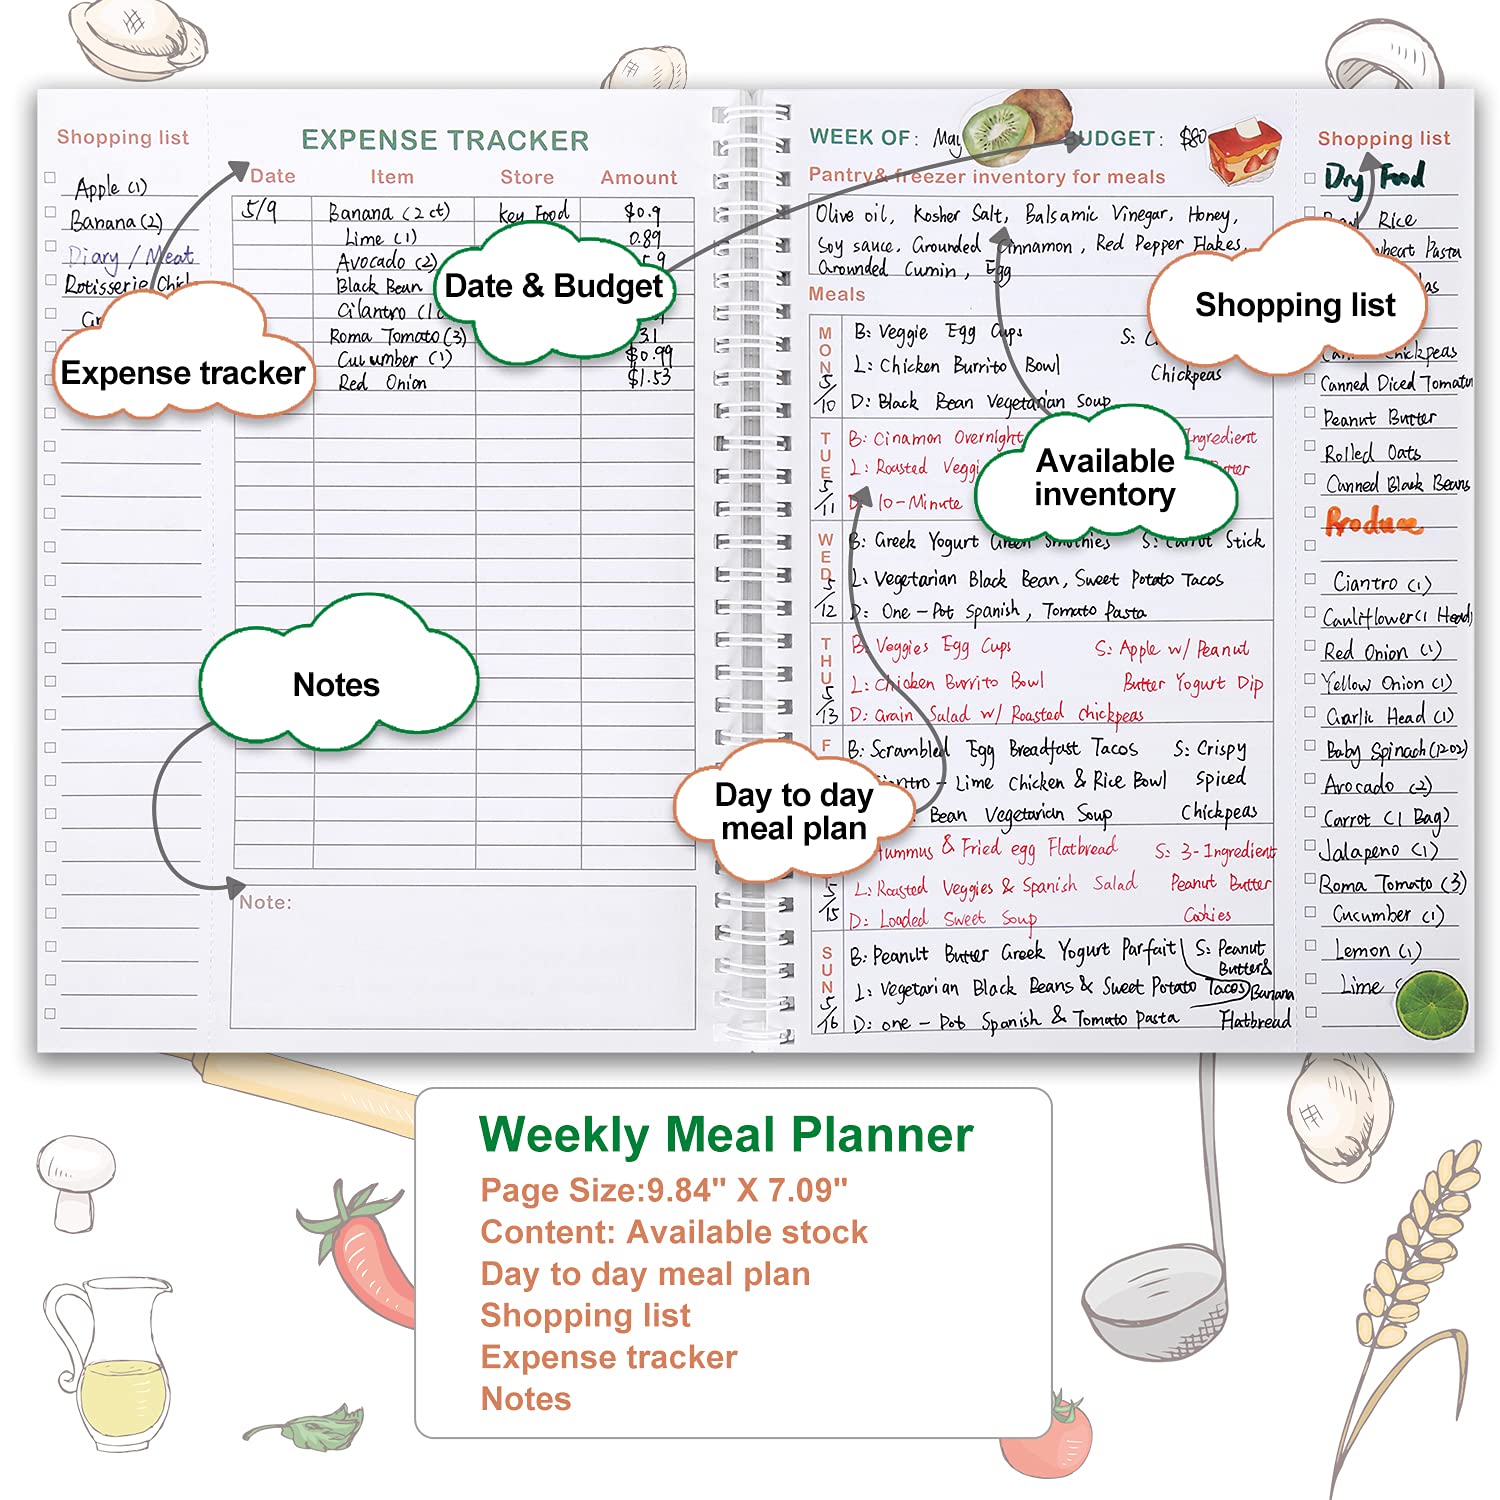 Shopping list
Apple (1)
Banana (2)
Diary / Meat
Rotisserie
EXPENSE TRACKER
Date Item Store Amount
5/9 Banana (2 ct) key Food $0.9
Lime (1) 0.89
Avocado (2)
Black Bean
Cilantro
Roma Tomato (3)
Cucumber (1) $0.99
Red Onion $1.53
Note:
Expense tracker
Date & Budget
Notes
WEEK OF: May BUDGET: $80
Pantry& freezer inventory for meals
Olive oil, Kosher Salt, Balsamic Vinegar, Honey,
Soy sauce, Grounded Cinnamon, Red Pepper Flakes,
Grounded Cumin, Egg
Meals
MON 5/10
B: Veggie Egg Cups S:
L: Chicken Burrito Bowl Chickpeas
D: Black Bean Vegetarian Soup
TUE 5/11
B: Cinamon Overnight Ingredient
L: Roasted
D: 10-Minute
WED 5/12
B: Greek Yogurt Green Smothies S: Carrot Stick
L: Vegetarian Black Bean, Sweet Potato Tacos
D: One-Pot Spanish, Tomato Pasta
THU 5/13
B: Veggies Egg Cups S: Apple w/ Peanut
L: Chicken Burrito Bowl Butter Yogurt Dip
D: Grain Salad w/ Roasted chickpeas
F
B: Scrambled Egg Breadfast Tacos S: Crispy
Lime Chicken & Rice Bowl Spiced
Bean Vegetarian Soup Chickpeas
& Fried egg Flatbread S: 3-Ingredient
5/15
L: Roasted Veggies & Spanish Salad Peanut Butter
D: Loaded Sweet Soup Cookies
SUN 5/16
B: Peanult Butter Greek Yogurt Parfait S: Peanut
Butter&
L: Vegetarian Black Beans & Sweet Potato Tacos Banana
D: one-Pot Spanish & Tomato Pasta Flatbread
Available
inventory
Day to day
meal plan
Shopping list
Shopping list
Dry Food
Rice
Pasta
Canned Diced Tomatun
Peanut Butter
Rolled Oats
Canned Black Beans
Produce
Ciantro (1)
Cauliflower (1 Head)
Red Onion (1)
Yellow Onion (1)
Garlic Head (1)
Baby Spinach (12oz)
Avocado (2)
Carrot (1 Bag)
Jalapeno (1)
Roma Tomato (3)
Cucumber (1)
Lemon (1)
Lime
Weekly Meal Planner
Page Size:9.84" X 7.09"
Content: Available stock
Day to day meal plan
Shopping list
Expense tracker
Notes